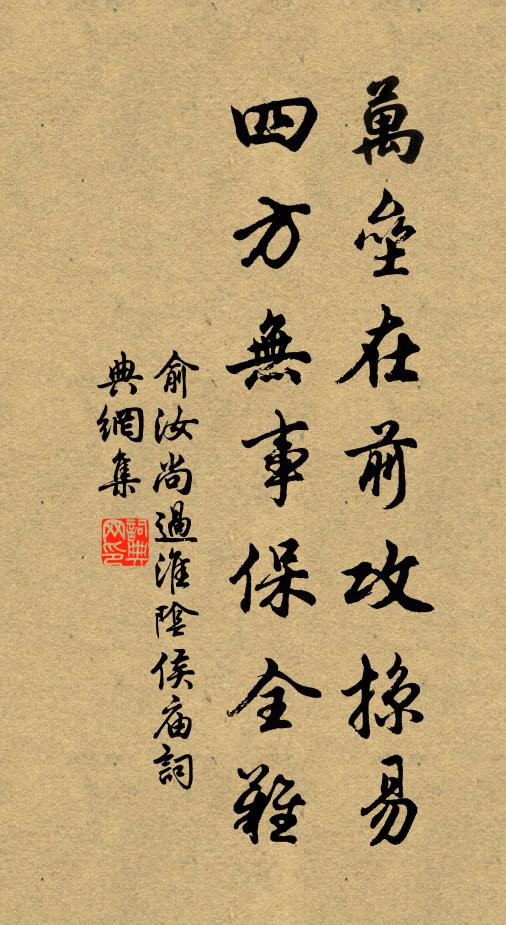 萬壘在前攻掠易
四方無事保全難
俞汝尚過淮陰侯庙詞
典網集
詞典网印